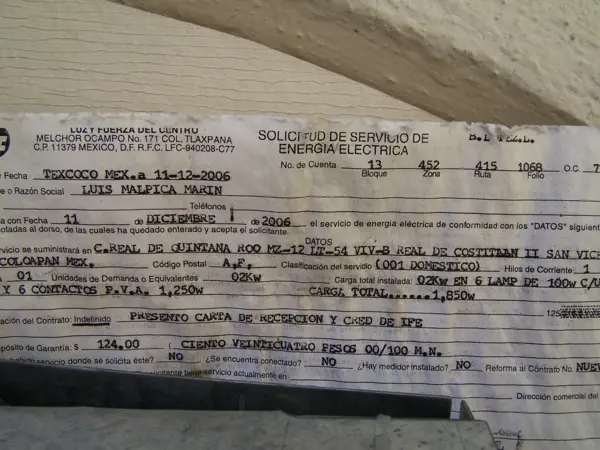 LUZ Y FUERZA DEL CENTRO
MELCHOR OCAMPO No. 171 COL. TLAXPANA
C.P. 11379 MEXICO, D.F. R.F.C. LFC-940208-C77
SOLICITUD DE SERVICIO DE
ENERGIA ELECTRICA
No. de Cuenta 13 452 415 1068 O.C. 7
Bloque Zona Ruta Folio
Fecha TEXCOCO MEX.a 11-12-2006
o Razón Social LUIS MALPICA MARIN
Teléfonos
a con Fecha 11 de DICIEMBRE de 2006 el servicio de energía eléctrica de conformidad con los "DATOS" siguient
otadas al dorso, de las cuales ha quedado enterado y acepta el solicitante.
DATOS
vicio se suministrará en C.REAL DE QUINTANA ROO MZ-12 LT-54 VIV-B REAL DE COSTITAAN II SAN VICE
COLOAPAN MEX. Código Postal A,F, Clasificación del servicio (001 DOMESTICO) Hilos de Corriente 1
01 Unidades de Demanda o Equivalentes 02Kw Carga total instalada: 02KW EN 6 LAMP DE 100w C/U
Y 6 CONTACTOS P.V.A. 1,250w CARGA TOTAL......1,850w
ación del Contrato: Indefinido PRESENTO CARTA DE RECEPCION Y CRED DE IFE
pósito de Garantía: $ 124.00 ( CIENTO VEINTICUATRO PESOS 00/100 M.N.
servicio donde se solicita éste? NO ¿Se encuentra conectado? NO ¿Hay medidor instalado? NO Reforma al Contrato No. NUEV
licitante tiene servicio actualmente en
Dirección comercial del